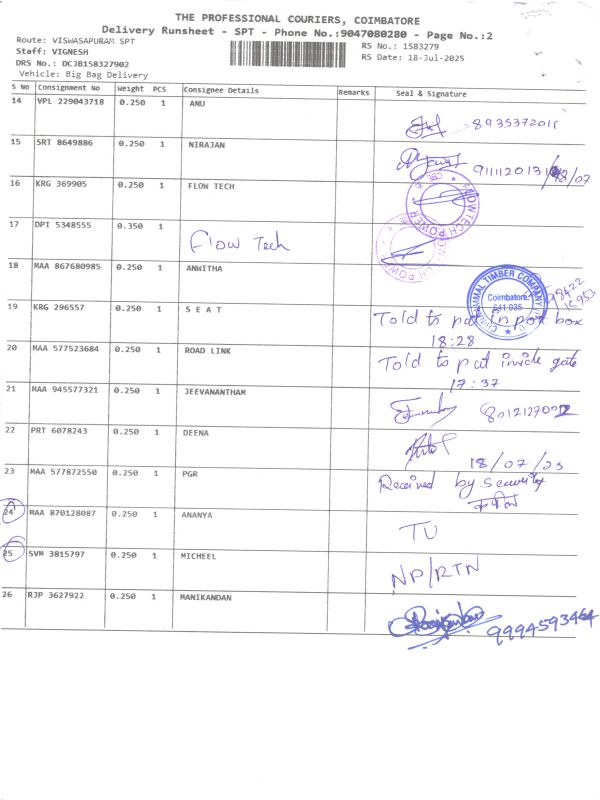 THE PROFESSIONAL COURIERS, COIMBATORE
Delivery Runsheet - SPT - Phone No.:9047080280 - Page No.:2
Route: VISWASAPURAM SPT
RS No.: 1583279
Staff: VIGNESH
RS Date: 18-Jul-2025
DRS No.: DCJB158327902
Vehicle: Big Bag Delivery
S No Consignment No Weight PCS Consignee Details Remarks Seal & Signature
14 VPL 229043718 0.250 1 ANU
8935372011
15 SRT 8649886 0.250 1 NIRAJAN
16 KRG 369905 0.250 1 FLOW TECH
17 DPI 5348555 0.350 1 Flow Tech
18 MAA 867680985 0.250 1 ANWITHA
TIMBER COMPANY
Coimbatore
641 035
19 KRG 296557 0.250 1 S E A T
Told to put in post box
18:28
20 MAA 577523684 0.250 1 ROAD LINK
Told to put inside gate
17:37
21 MAA 945577321 0.250 1 JEEVANANTHAM
22 PRT 6078243 0.250 1 DEENA
18/07/25
23 MAA 577872550 0.250 1 PGR
Received by security
24 MAA 870128087 0.250 1 ANANYA
TU
25 SVM 3815797 0.250 1 MICHEEL
NP/RTN
26 RJP 3627922 0.250 1 MANIKANDAN
9994593464